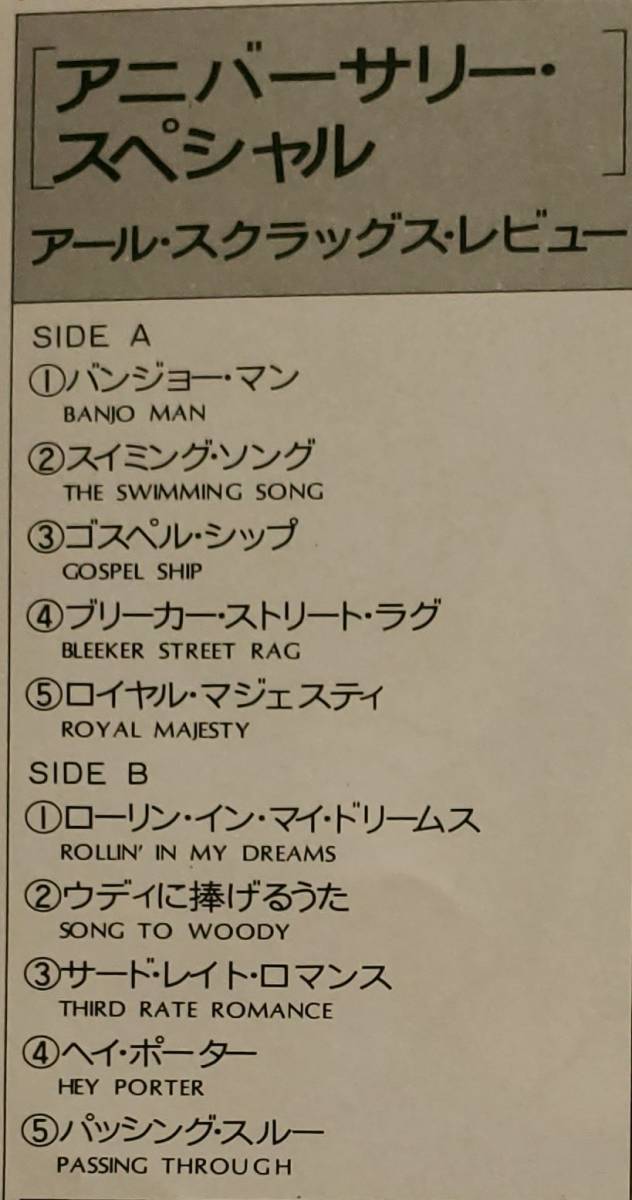 アニバーサリー・
スペシャル
アール・スクラッグス・レビュー
SIDE A
①バンジョー・マン
BANJO MAN
②スイミング・ソング
THE SWIMMING SONG
③ゴスペル・シップ
GOSPEL SHIP
④ブリーカー・ストリート・ラグ
BLEEKER STREET RAG
⑤ロイヤル・マジェスティ
ROYAL MAJESTY
SIDE B
①ローリン・イン・マイ・ドリームス
ROLLIN' IN MY DREAMS
②ウディに捧げるうた
SONG TO WOODY
③サード・レイト・ロマンス
THIRD RATE ROMANCE
④ヘイ・ポーター
HEY PORTER
⑤パッシング・スルー
PASSING THROUGH